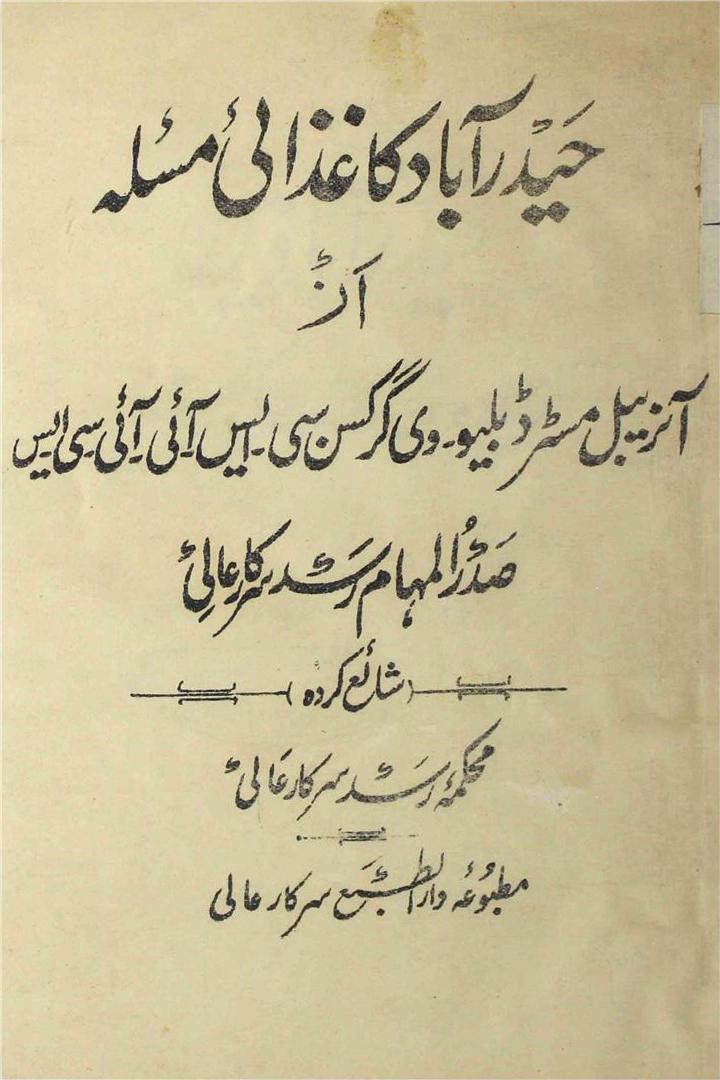 حیدرآباد کا غذائی مسئلہ
از
آنریبل مسٹر ڈبلیو۔ وی گرگسن سی۔ ایس آئی۔ آئی سی ایس
صدرُ المہام رسد سرکار عالی
(شائع کردہ)
محکمۂ رسد سرکار عالی
مطبوُعہ دارالطبع سرکار عالی